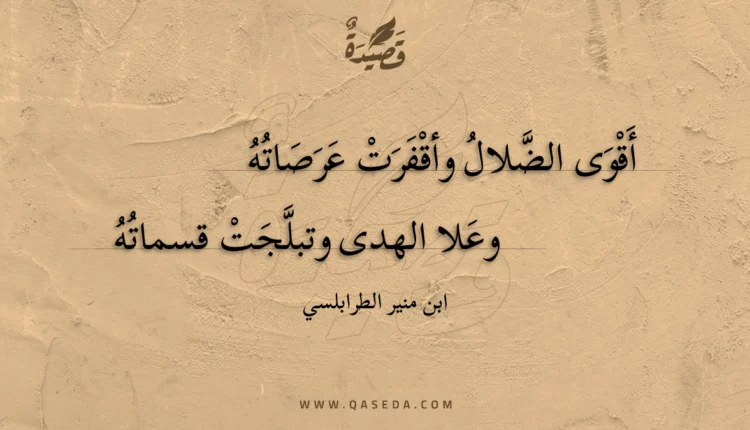 قَصِيْدَةٌ
أَقْوَى الضَّلالُ وأقْفَرَتْ عَرَصَاتُهُ
وعَلا الهدى وتبلَّجَتْ قسماتُهُ
ابن منير الطرابلسي
WWW.QASEDA.COM